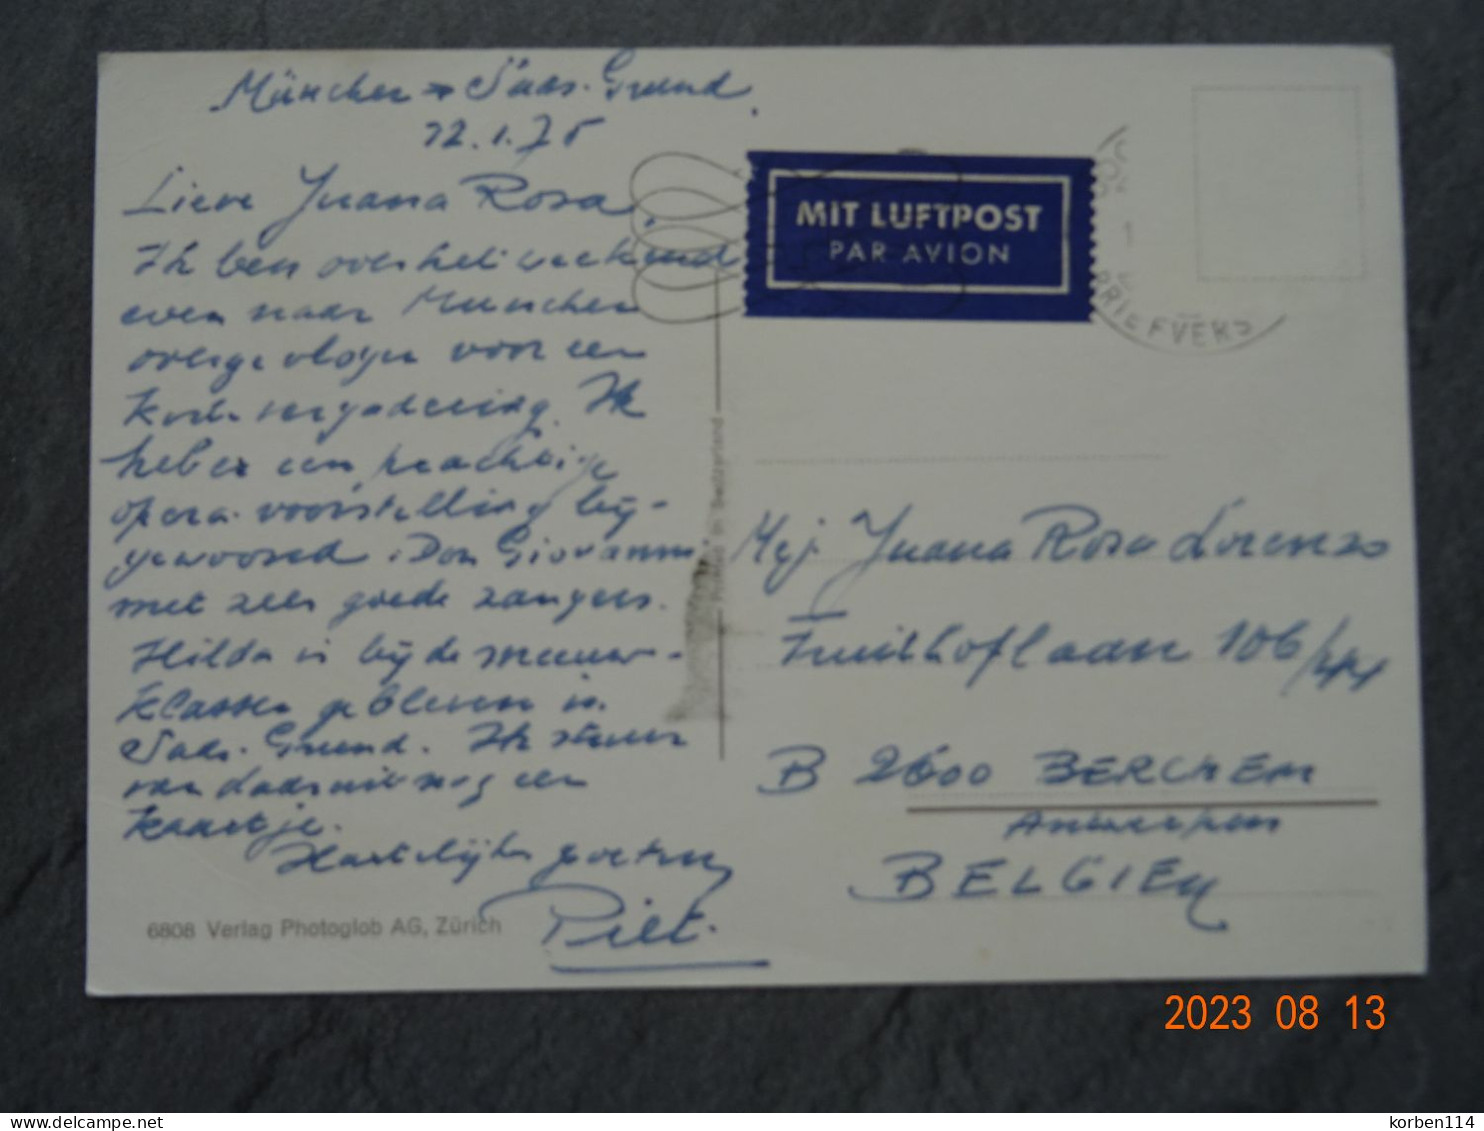 München → Saas-Grund.
22.1.75
Lieve Juana Rosa,
Ik ben over het weekend
even naar Munchen
overgevlogen voor een
korte vergadering. Ik
heb er een prachtige
opera-voorstelling bij-
gewoond. Don Giovanni
met zeer goede zangers.
Hilda is bij de sneeuw-
klassen gebleven in
Saas-Grund. Ik stuur
van daaruit nog een
kaartje.
Hartelijke groeten,
Piet.
6808 Verlag Photoglob AG, Zürich
Printed in Switzerland
MIT LUFTPOST
PAR AVION
BRIEFVERS
Mej Juana Rosa Lorenzo
Fruithoflaan 106/
B 2600 BERCHEM
Antwerpen
BELGIEN
2023 08 13
korben114